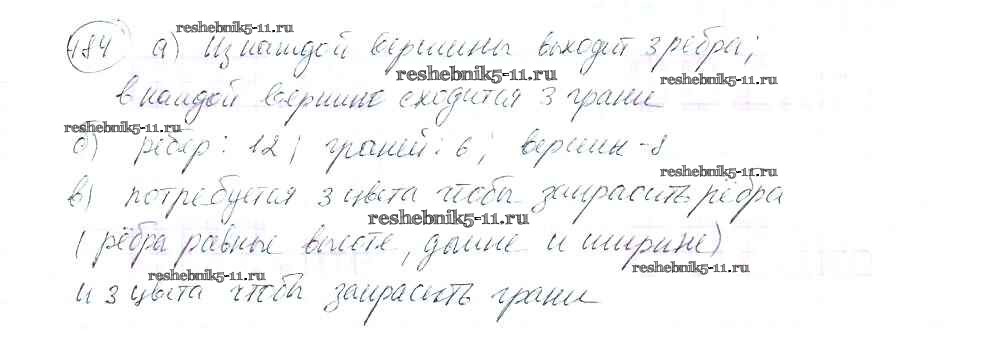 reshebnik5-11.ru
184 а) Из каждой вершины выходит 3 ребра;
reshebnik5-11.ru reshebnik5-11.ru
в каждой вершине сходится 3 грани
reshebnik5-11.ru
б) рёбер: 12; граней: 6; вершин - 8
в) потребуется 3 цвета чтобы закрасить рёбра
reshebnik5-11.ru
(рёбра равные высоте, длине и ширине)
reshebnik5-11.ru reshebnik5-11.ru
и 3 цвета чтобы закрасить грани